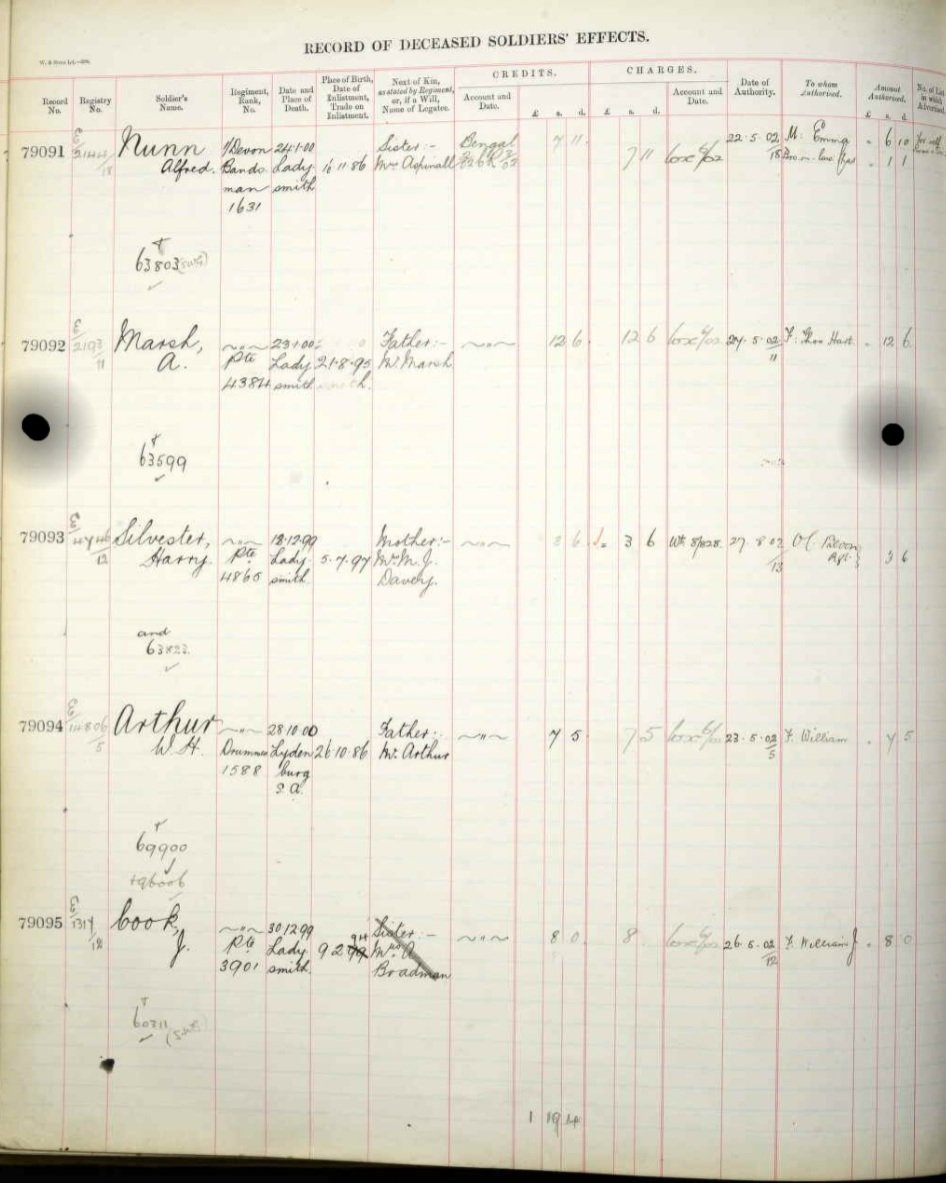 RECORD OF DECEASED SOLDIERS' EFFECTS.
CREDITS. CHARGES.
Record No. Registry No. Soldier's Name. Regiment, Rank, No. Date and Place of Death. Place of Birth, Date of Enlistment, Trade on Enlistment. Next of Kin, as stated by Regiment, or, if a Will, Name of Legatee. Account and Date. £ s. d. £ s. d. Account and Date. Date of Authority. To whom Authorised. Amount Authorised. £ s. d. No. of List in which Advertised
79091 E Nunn 1/Devon 24·1·00 Sister:- Bengal 7 11 22·5·02 M: Emma " 6 10
18 Alfred. Bands Lady 16·11·86 Mrs Aspinall 7 11 18 " 1 1
man smith
1631
+
63803
79092 E Marsh, ~"~ 23·1·00 Father:- ~"~ 12 6 12 6 27·5·02 F: Thos Hart " 12 6
2193 11 A. Pte Lady 21·8·95 Mr Marsh 11
4384 smith
+
63599
79093 E Silvester, ~"~ 18·12·99 Mother:- ~"~ 3 6 3 6 27·8·02 Devon
12 Harry. Pte Lady 5·7·97 Mrs M. J. 13 3 6
4865 smith. Davey.
and
63823
79094 E Arthur ~"~ 28·10·00 Father:- ~"~ 7 5 7 5 23·5·02 F. William " 7 5
14806 5 W. H. Drummer Lyden 26·10·86 Mr Arthur 5
1588 burg
S.A.
+
69900
+96006
79095 E Cook, ~"~ 30·12·99 Sister:- ~"~ 8 0 8 26·5·02 F. William J " 8 0
1317 12 J. Pte Lady 9·2·94 Mrs A 12
3901 smith. Bradman
+
60311
1 19 4